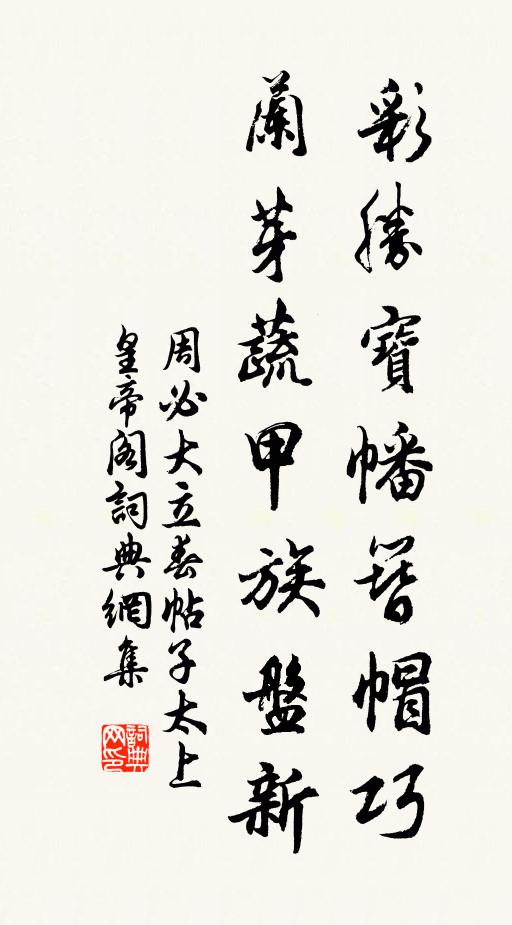 彩勝寶幡簪帽巧
蘭芽蔬甲族盤新
周必大立春帖子太上
皇帝閣詞典網集
詞典
网印